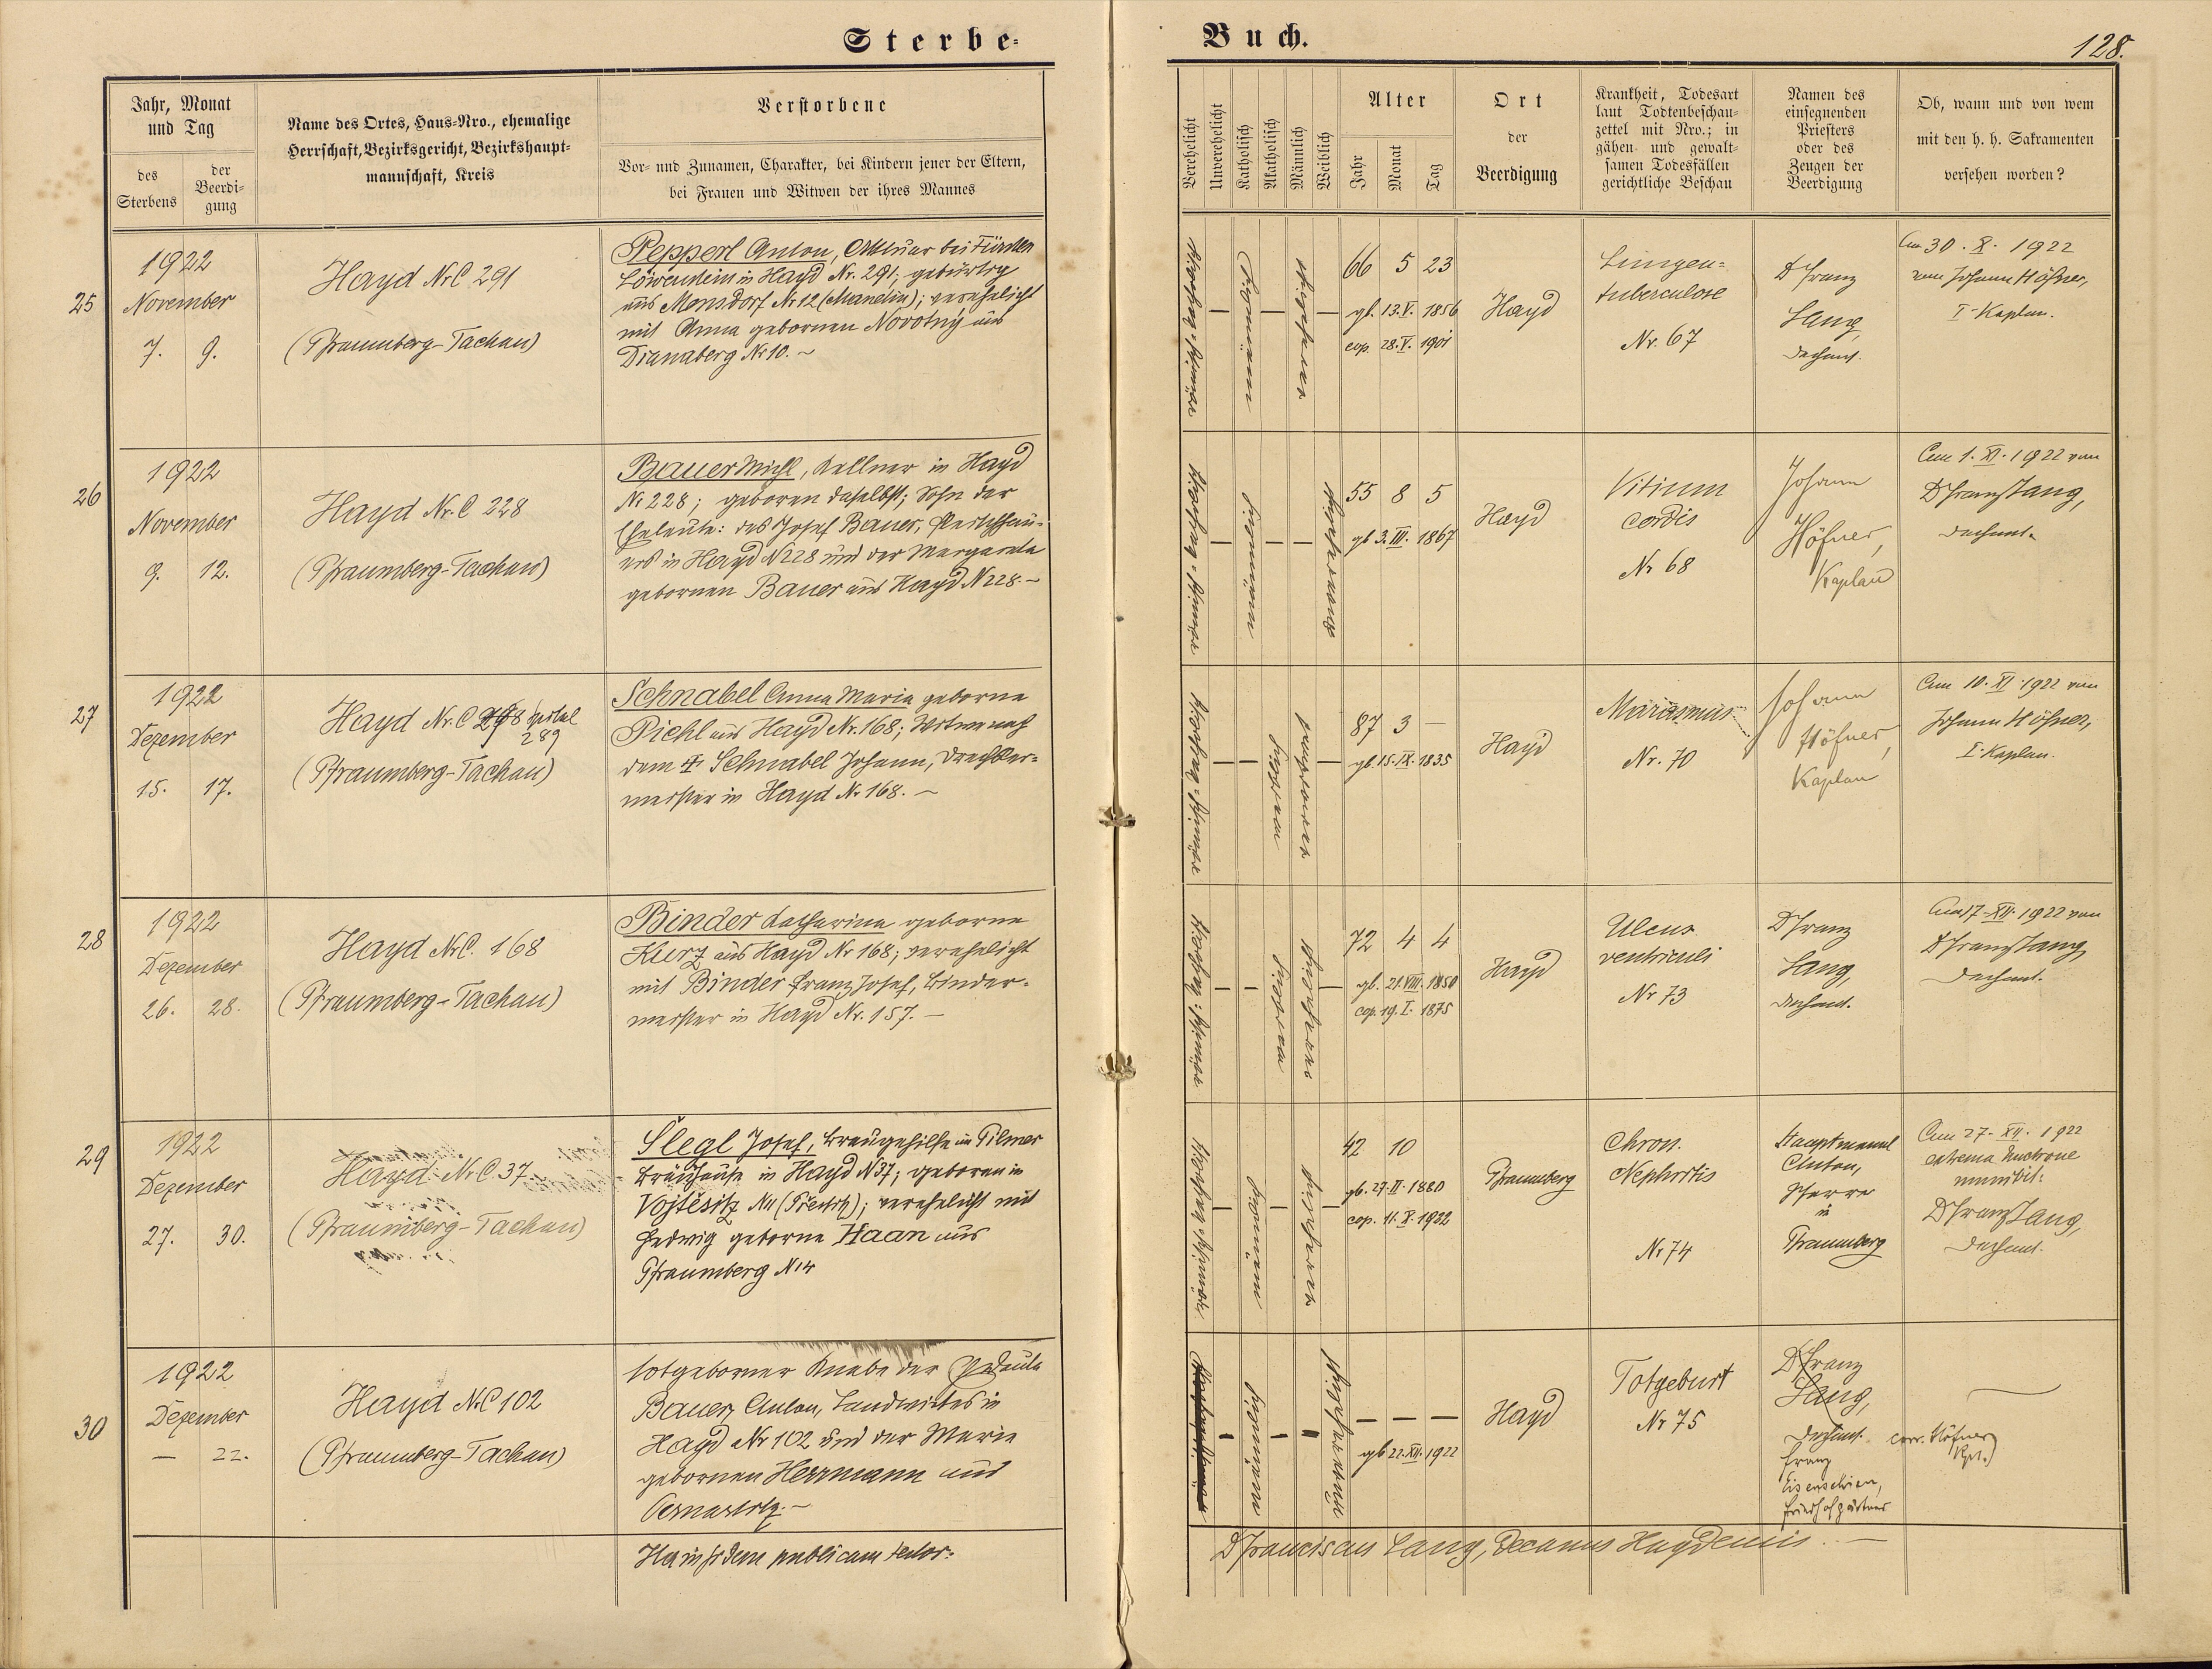 Sterbe-
Buch.
128.
Jahr, Monat
und Tag
des
Sterbens
der
Beerdi-
gung
Name des Ortes, Haus-Nro., ehemalige
Herrschaft, Bezirksgericht, Bezirkshaupt-
mannschaft, Kreis
Verstorbene
Vor- und Zunamen, Charakter, bei Kindern jener der Eltern,
bei Frauen und Witwen der ihres Mannes
Verehelicht
Unverehelicht
Katholisch
Akatholisch
Männlich
Weiblich
Alter
Jahr
Monat
Tag
Ort
der
Beerdigung
Krankheit, Todesart
laut Todtenbeschau-
zettel mit Nro.; in
gähen und gewalt-
samen Todesfällen
gerichtliche Beschau
Namen des
einsegnenden
Priesters
oder des
Zeugen der
Beerdigung
Ob, wann und von wem
mit den h. h. Sakramenten
versehen worden?
25
1922
November
7. 9.
Hayd Nr.C 291
(Pfraumberg-Tachau)
Pepperl Anton, Aktuar bei Fürsten
Löwenstein in Hayd Nr. 291; gebürtig
aus Monsdorf Nr 12 (Manetin); verehelicht
mit Anna gebornen Novotný aus
Dianaberg Nr 10. ~
66 5 23
gb. 13. V. 1856
cop. 28. V. 1901
Hayd
Lungen-
tuberculose
Nr. 67
P Franz
Lang,
Dechant.
Am 30. X. 1922
vom Johann Höfner,
I. Kaplan.
26
1922
November
9. 12.
Hayd Nr.C 228
(Pfraumberg-Tachau)
Bauer Michl, Kellner in Hayd
Nr 228; geboren daselbst; Sohn der
Eheleute: des Josef Bauer,
in Hayd N 228 und der Margareta
gebornen Bauer aus Hayd N 228. ~
55 8 5
gb 3. III. 1867
Hayd
Vitium
cordis
Nr 68
Johann
Höfner,
Kaplan
Am 1. XI. 1922 von
P Franz Lang,
Dechant.
27
1922
Dezember
15. 17.
Hayd Nr.C 298 Spital
289
(Pfraumberg-Tachau)
Schnabel Anna Maria geborne
Piehl aus Hayd Nr. 168; Witwe nach
dem † Schnabel Johann, Drechsler-
meister in Hayd Nr 168. ~
87 3 —
gb. 15. IX. 1835
Hayd
Marasmus
Nr. 70
Johann
Höfner,
Kaplan
Am 10. XI. 1922 von
Johann Höfner,
I. Kaplan.
28
1922
Dezember
26. 28.
Hayd Nr.C. 168
(Pfraumberg-Tachau)
Binder Katharina geborne
Kurz aus Hayd Nr 168; verehelicht
mit Binder Franz Josef, Binder-
meister in Hayd Nr. 157. —
72 4 4
gb. 21. VIII. 1850
cop. 19. I. 1875
Hayd
Ulcus
ventriculi
Nr 73
P Franz
Lang,
Dechant.
Am 17. XII. 1922 von
P Franz Lang
Dechant.
29
1922
Dezember
27. 30.
Hayd Nr.C 37.
(Pfraumberg-Tachau)
Slegl Josef, Braugehilfe im Pilmer
Bräuhause in Hayd N 37; geboren in
Vojtěsitz N 11 verehelicht mit
Hedwig geborne Haan aus
Pfraumberg N 14
42 10
gb. 27. II. 1880
cop. 11. X. 1922
Pfraumberg
Chron.
Nephritis
Nr 74
Hauptmannl
Anton,
Pfarrer
in
Pfraumberg
Am 27. XII. 1922
extrema unctione
munivit:
P Franz Lang,
Dechant.
30
1922
Dezember
— 22.
Hayd Nr.C 102
(Pfraumberg-Tachau)
totgeborner Knabe der Eheleute
Bauer Anton, Landwirtes in
Hayd Nr 102 und der Marie
gebornen Herrmann aus
— — —
gb 22. XII. 1922
Hayd
Totgeburt
Nr 75
P Franz
Lang,
Dechant.
corr. Höfner
Kpl.)
Franz
Eisenschien,
Friedhofgärtner
Haec in fidem publicam testor:
P Franciscus Lang, Decanus Haydensis. —